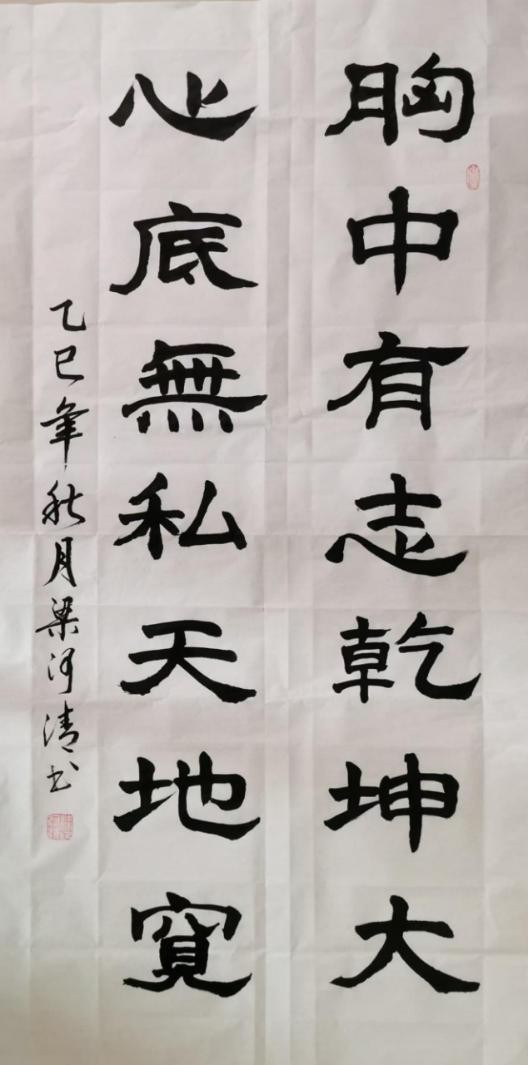 胸中有志乾坤大
心底無私天地寬
乙巳年秋月梁河清书